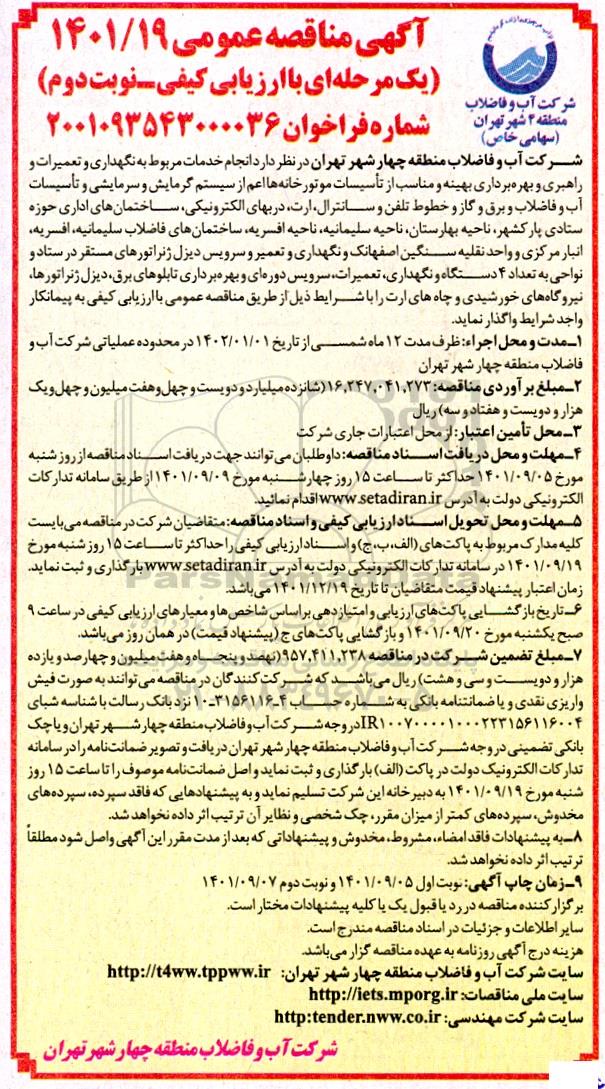 آگهی مناقصه عمومی ۱۴۰۱/۱۹
(یک مرحله‌ای با ارزیابی کیفی ـ نوبت دوم)
شماره فراخوان ۲۰۰۱۰۹۳۵۴۳۰۰۰۰۳۶
شرکت آب و فاضلاب
منطقه ۴ شهر تهران
(سهامی خاص)
شرکت آب و فاضلاب منطقه چهار شهر تهران در نظر دارد انجام خدمات مربوط به نگهداری و تعمیرات و
راهبری و بهره‌برداری بهینه و مناسب از تأسیسات موتورخانه‌ها اعم از سیستم گرمایش و سرمایشی و تأسیسات
آب و فاضلاب و برق و گاز و خطوط تلفن و سانترال، ارت، دربهای الکترونیکی، ساختمان‌های اداری حوزه
ستادی پارکشهر، ناحیه بهارستان، ناحیه سلیمانیه، ناحیه افسریه، ساختمان‌های فاضلاب سلیمانیه، افسریه،
انبار مرکزی و واحد نقلیه سنگین اصفهانک و نگهداری و تعمیر و سرویس دیزل ژنراتورهای مستقر در ستاد و
نواحی به تعداد ۴ دستگاه و نگهداری، تعمیرات، سرویس دوره‌ای و بهره‌برداری تابلوهای برق، دیزل ژنراتورها،
نیروگاه‌های خورشیدی و چاه های ارت را با شرایط ذیل از طریق مناقصه عمومی با ارزیابی کیفی به پیمانکار
واجد شرایط واگذار نماید.
۱ـ مدت و محل اجراء: ظرف مدت ۱۲ ماه شمسی از تاریخ ۱۴۰۲/۰۱/۰۱ در محدوده عملیاتی شرکت آب و
فاضلاب منطقه چهار شهر تهران
۲ـ مبلغ برآوردی مناقصه: ۱۶,۲۴۷,۰۴۱,۲۷۳ (شانزده میلیارد و دویست و چهل و هفت میلیون و چهل و یک
هزار و دویست و هفتاد و سه) ریال
۳ـ محل تأمین اعتبار: از محل اعتبارات جاری شرکت
۴ـ مهلت و محل دریافت اسناد مناقصه: داوطلبان می‌توانند جهت دریافت اسناد مناقصه از روز شنبه
مورخ ۱۴۰۱/۰۹/۰۵ حداکثر تا ساعت ۱۵ روز چهارشنبه مورخ ۱۴۰۱/۰۹/۰۹ از طریق سامانه تدارکات
الکترونیکی دولت به آدرس www.setadiran.ir اقدام نمائید.
۵ـ مهلت و محل تحویل اسناد ارزیابی کیفی و اسناد مناقصه: متقاضیان شرکت در مناقصه می‌بایست
کلیه مدارک مربوط به پاکت‌های (الف، ب، ج) و اسناد ارزیابی کیفی را حداکثر تا ساعت ۱۵ روز شنبه مورخ
۱۴۰۱/۰۹/۱۹ در سامانه تدارکات الکترونیکی دولت به آدرس www.setadiran.ir بارگذاری و ثبت نماید.
زمان اعتبار پیشنهاد قیمت متقاضیان تا تاریخ ۱۴۰۱/۱۲/۱۹ می‌باشد.
۶ـ تاریخ بازگشایی پاکت‌های ارزیابی و امتیازدهی براساس شاخص‌ها و معیارهای ارزیابی کیفی در ساعت ۹
صبح یکشنبه مورخ ۱۴۰۱/۰۹/۲۰ و بازگشایی پاکت‌های ج (پیشنهاد قیمت) در همان روز می‌باشد.
۷ـ مبلغ تضمین شرکت در مناقصه ۹۵۷,۴۱۱,۲۳۸ (نهصد و پنجاه و هفت میلیون و چهارصد و یازده
هزار و دویست و سی و هشت) ریال می‌باشد که شرکت‌کنندگان در مناقصه می‌توانند به صورت فیش
واریزی نقدی و یا ضمانتنامه بانکی به شماره حساب ۴ـ۳۱۵۶۱۱۶ـ۱۰ نزد بانک رسالت با شناسه شبای
IR۱۰۰۷۰۰۰۰۱۰۰۰۲۲۳۱۵۶۱۱۶۰۰۴ در وجه شرکت آب و فاضلاب منطقه چهار شهر تهران و یا چک
بانکی تضمینی در وجه شرکت آب و فاضلاب منطقه چهار شهر تهران دریافت و تصویر ضمانت‌نامه را در سامانه
تدارکات الکترونیک دولت در پاکت (الف) بارگذاری و ثبت نماید و اصل ضمانت‌نامه موصوف را تا ساعت ۱۵ روز
شنبه مورخ ۱۴۰۱/۰۹/۱۹ به دبیرخانه این شرکت تسلیم نماید و به پیشنهادهایی که فاقد سپرده، سپرده‌های
مخدوش، سپرده‌های کمتر از میزان مقرر، چک شخصی و نظایر آن ترتیب اثر داده نخواهد شد.
۸ـ به پیشنهادات فاقد امضاء، مشروط، مخدوش و پیشنهاداتی که بعد از مدت مقرر این آگهی واصل شود مطلقاً
ترتیب اثر داده نخواهد شد.
۹ـ زمان چاپ آگهی: نوبت اول ۱۴۰۱/۰۹/۰۵ و نوبت دوم ۱۴۰۱/۰۹/۰۷
برگزارکننده مناقصه در رد یا قبول یک یا کلیه پیشنهادات مختار است.
سایر اطلاعات و جزئیات در اسناد مناقصه مندرج است.
هزینه درج آگهی روزنامه به عهده مناقصه گزار می‌باشد.
سایت شرکت آب و فاضلاب منطقه چهار شهر تهران: http://t4ww.tppww.ir
سایت ملی مناقصات: http://iets.mporg.ir
سایت شرکت مهندسی: http:tender.nww.co.ir
شرکت آب و فاضلاب منطقه چهار شهر تهران